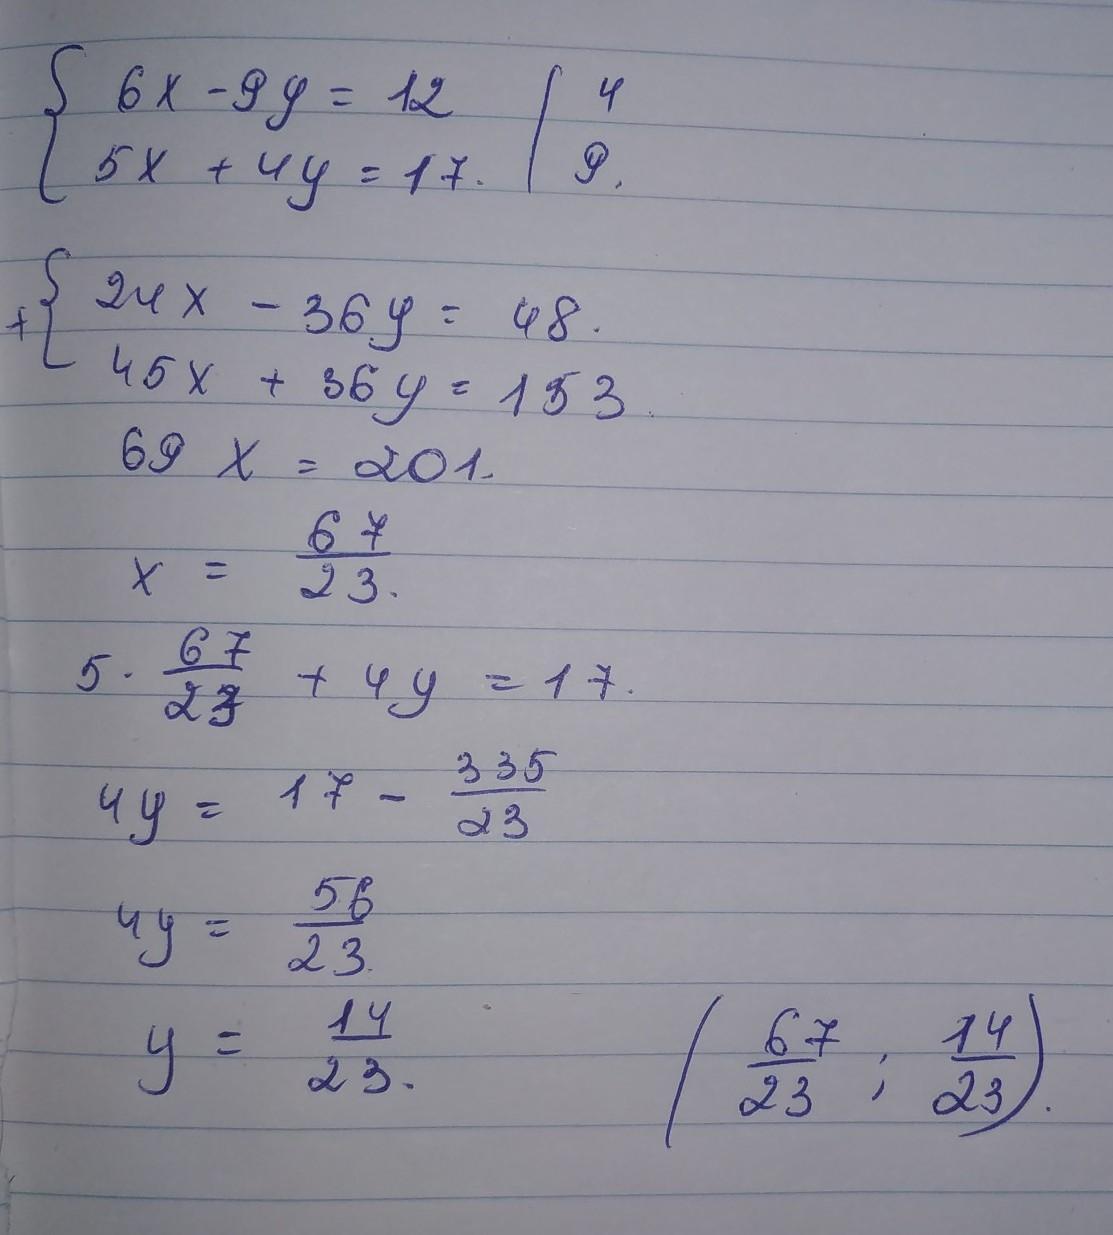 { 6x - 9y = 12 | 4
5x + 4y = 17. | 9.
+ { 24x - 36y = 48.
45x + 36y = 153.
69 x = 201.
x = 67/23.
5 · 67/23 + 4y = 17.
4y = 17 - 335/23
4y = 56/23.
y = 14/23. (67/23 ; 14/23).